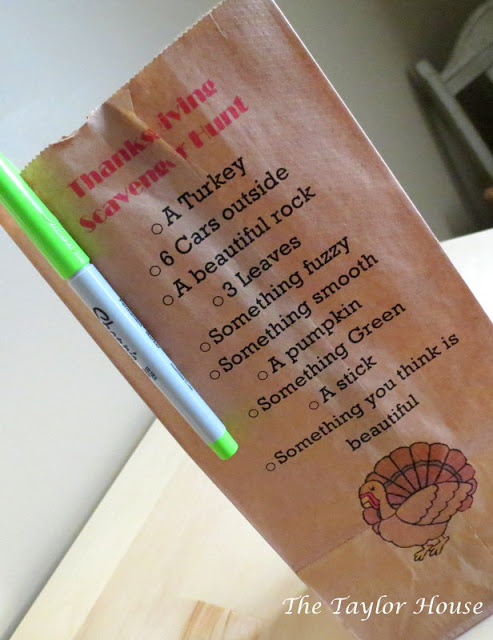 Thanksgiving
Scavenger Hunt
○ A Turkey
○ 6 Cars outside
○ A beautiful rock
○ 3 Leaves
○ Something fuzzy
○ Something smooth
○ A pumpkin
○ Something Green
○ A stick
○ Something you think is
beautiful
Sharpie
The Taylor House